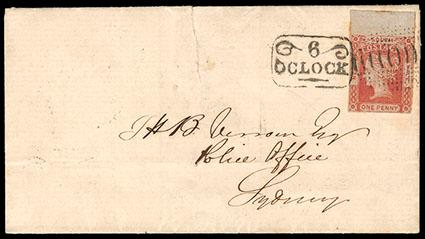 6
OCLOCK
POSTAGE
ONE PENNY
J H B Vernon Esq
Police Office
Sydney